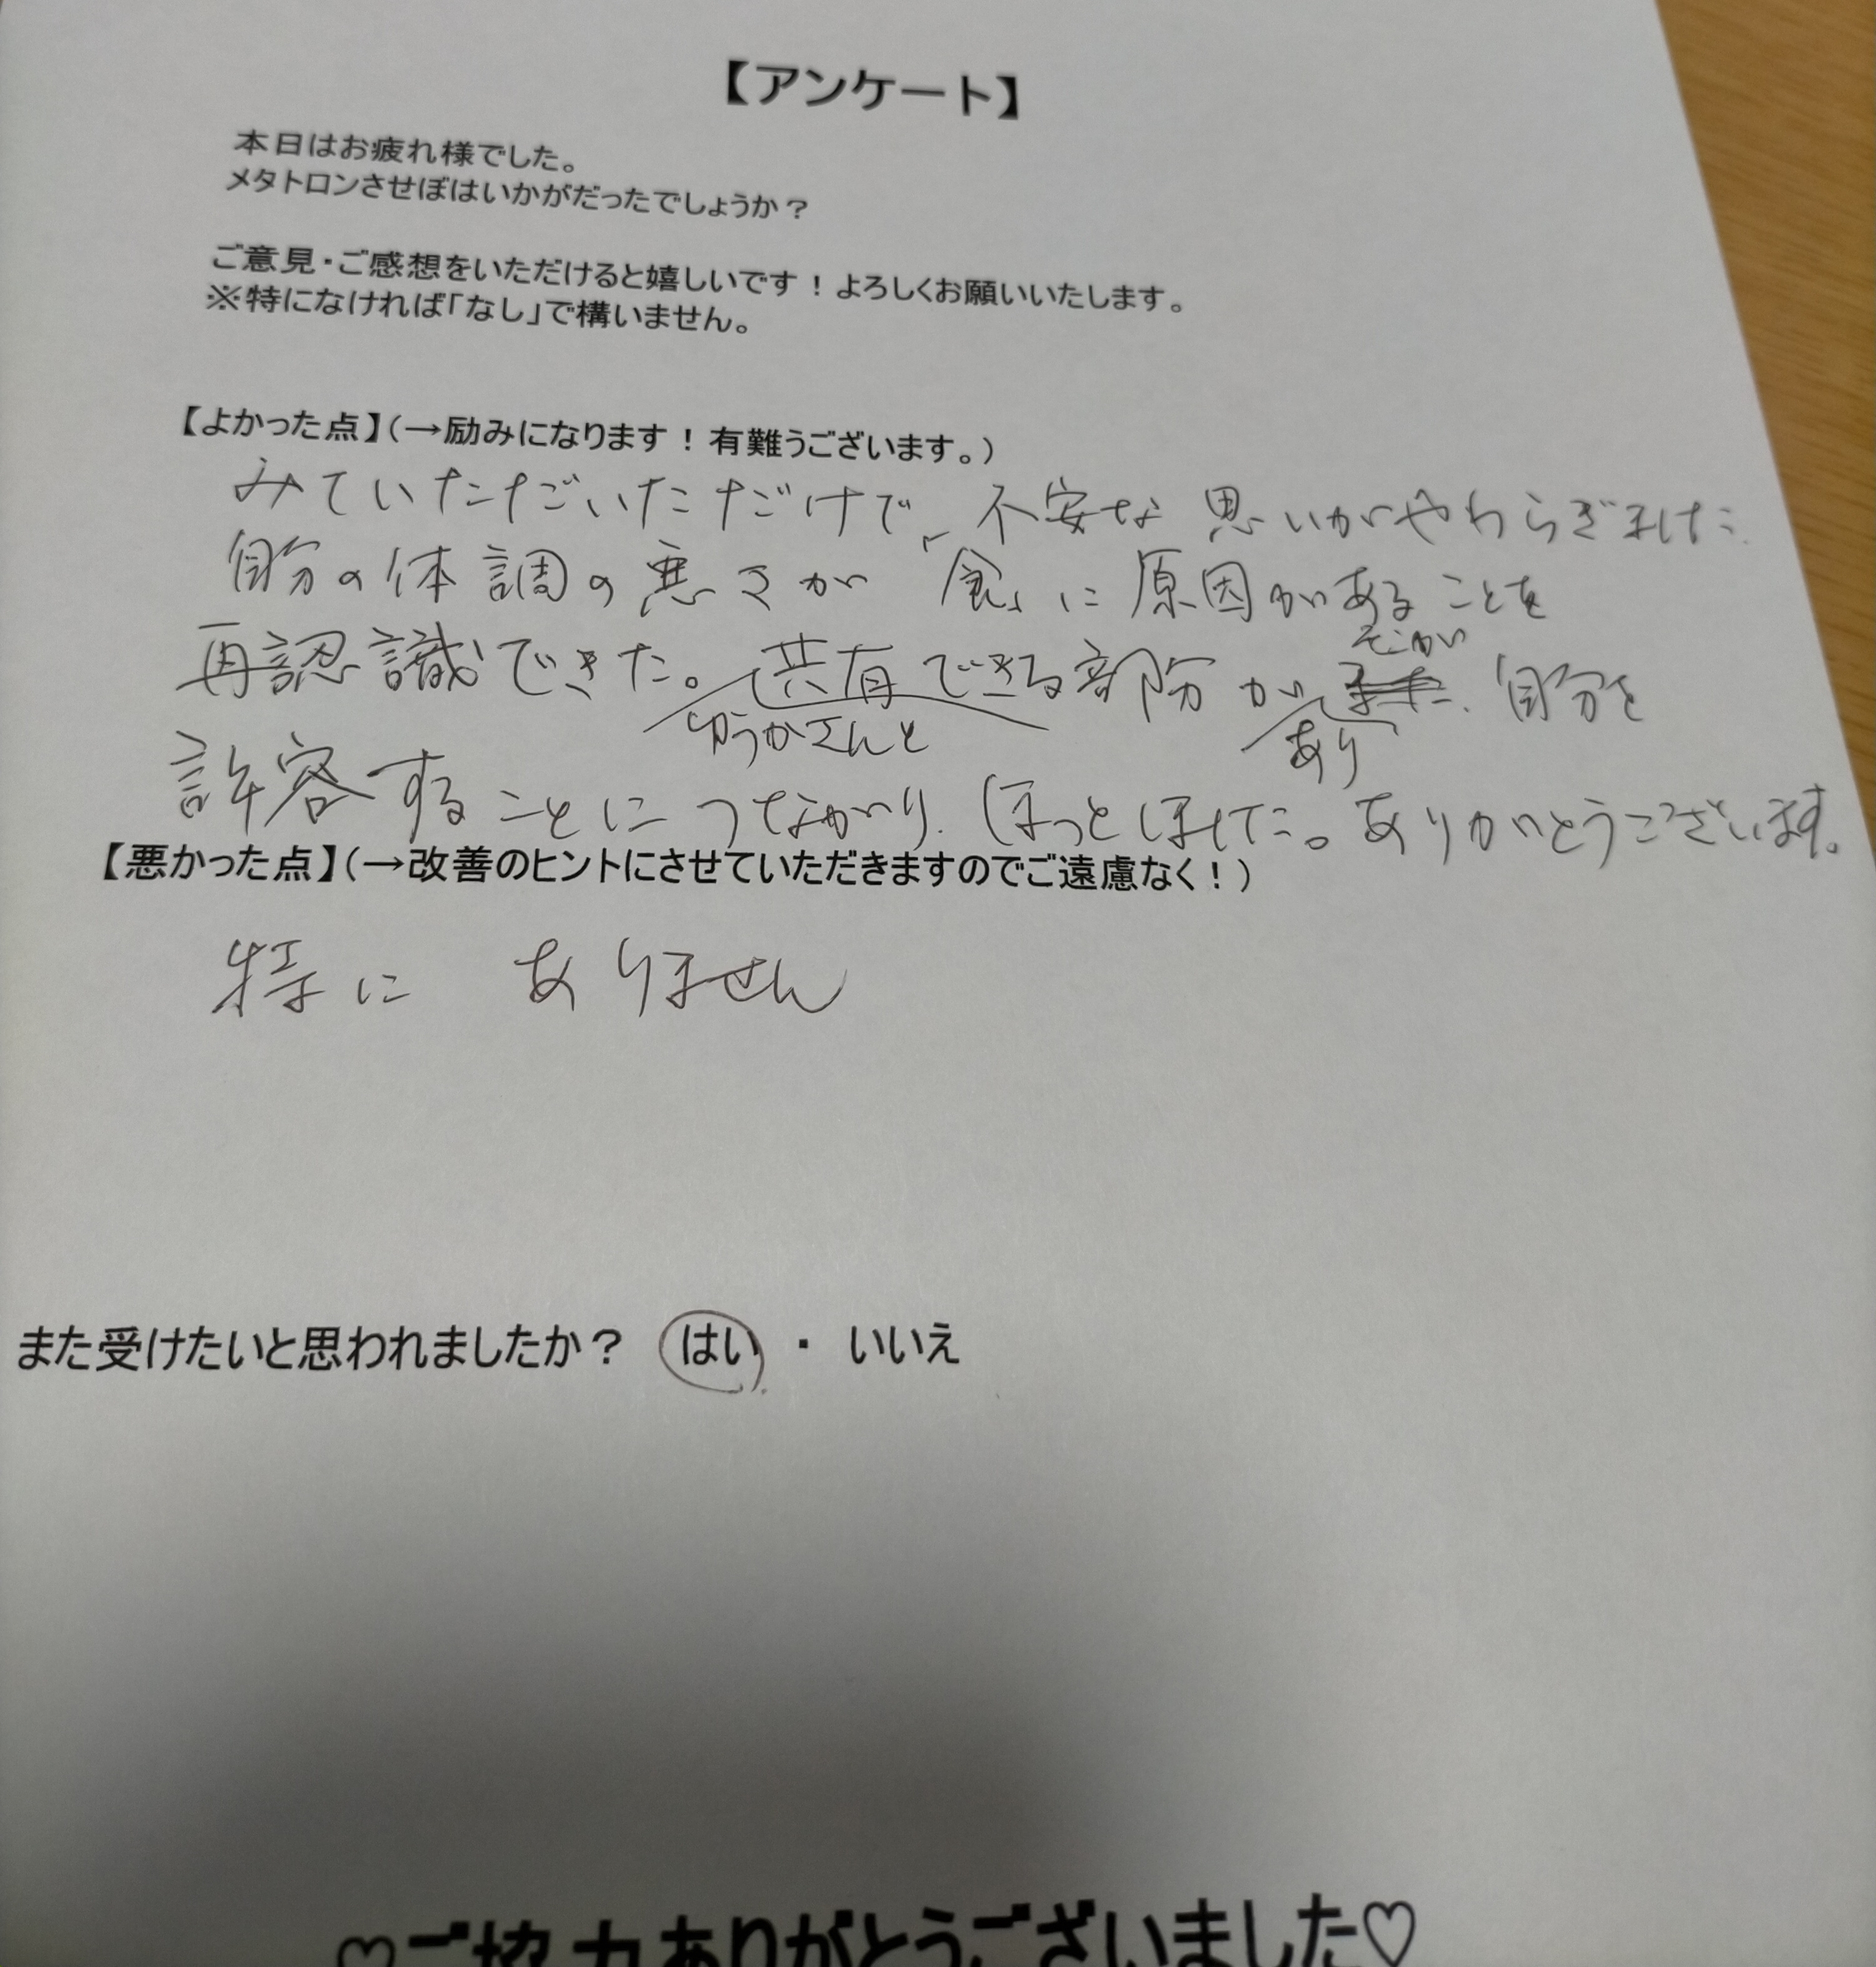 【アンケート】
本日はお疲れ様でした。
メタトロンさせぼはいかがだったでしょうか？
ご意見・ご感想をいただけると嬉しいです！よろしくお願いいたします。
※特になければ「なし」で構いません。
【よかった点】（→励みになります！有難うございます。）
みていただいただけで、不安な思いがやわらぎました
自分の体調の悪さが「食」に原因があることを
再認識できた。ゆうかさんと共有できる部分があり、そこが自分を
許容することにつながり、ほっとしました。ありがとうございます。
【悪かった点】（→改善のヒントにさせていただきますのでご遠慮なく！）
特に ありません
また受けたいと思われましたか？ はい ・ いいえ
♡ご協力ありがとうございました♡